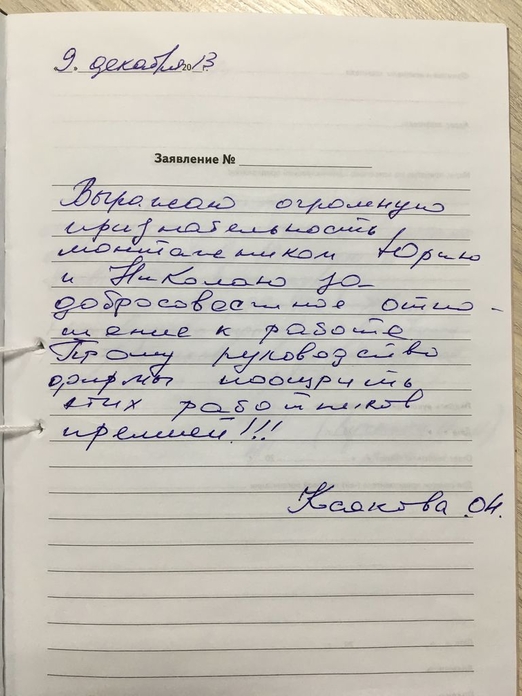 9. декабря 2013
Заявление №
Выражаю огромную
признательность
монтажником Юрию
и Николаю за
добросовестное отно-
шение к работе
Прошу руководство
фирмы поощрить
этих работников
премией!!!